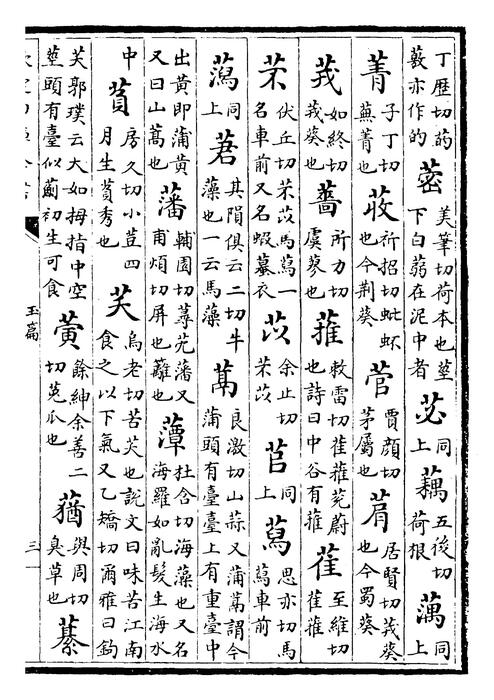 丁歴切菂藪亦作的 蔤 美筆切荷本也莖下白蒻在泥中者 苾 同上 藕 五後切荷根 蕅 同上
菁 子丁切蕪菁也 荍 祈招切蚍衃也今荆葵 菅 賈顔切茅屬也 菺 居賢切茙葵也今蜀葵
茙 如終切茙葵也 薔 所力切虞蓼也 蓷 敕雷切萑蓷茺蔚也詩曰中谷有蓷 萑 至維切萑蓷
芣 伏丘切芣苡馬蕮一名車前又名蝦蟇衣 苡 余止切芣苡 苢 同上 蕮 思亦切馬蕮車前
蔿 同上 莙 其隕俱云二切牛藻也一云馬藻 蒚 良激切山蒜又蒲蒚謂今蒲頭有臺臺上有重臺中
出黄即蒲黄又曰山蒚也 藩 輔園切蓴茺藩又甫煩切屏也籬也 藫 杜含切海藻也又名海羅如亂髮生海水
中 萯 房久切小荳四月生萯秀也 芺 烏老切苦芺也說文曰味苦江南食之以下氣又乙矯切爾雅曰鈎
芺郭璞云大如拇指中空莖頭有臺似薊初生可食 蔩 餘紳余善二切菟瓜也 蕕 與周切臭草也 藄
玉篇
三